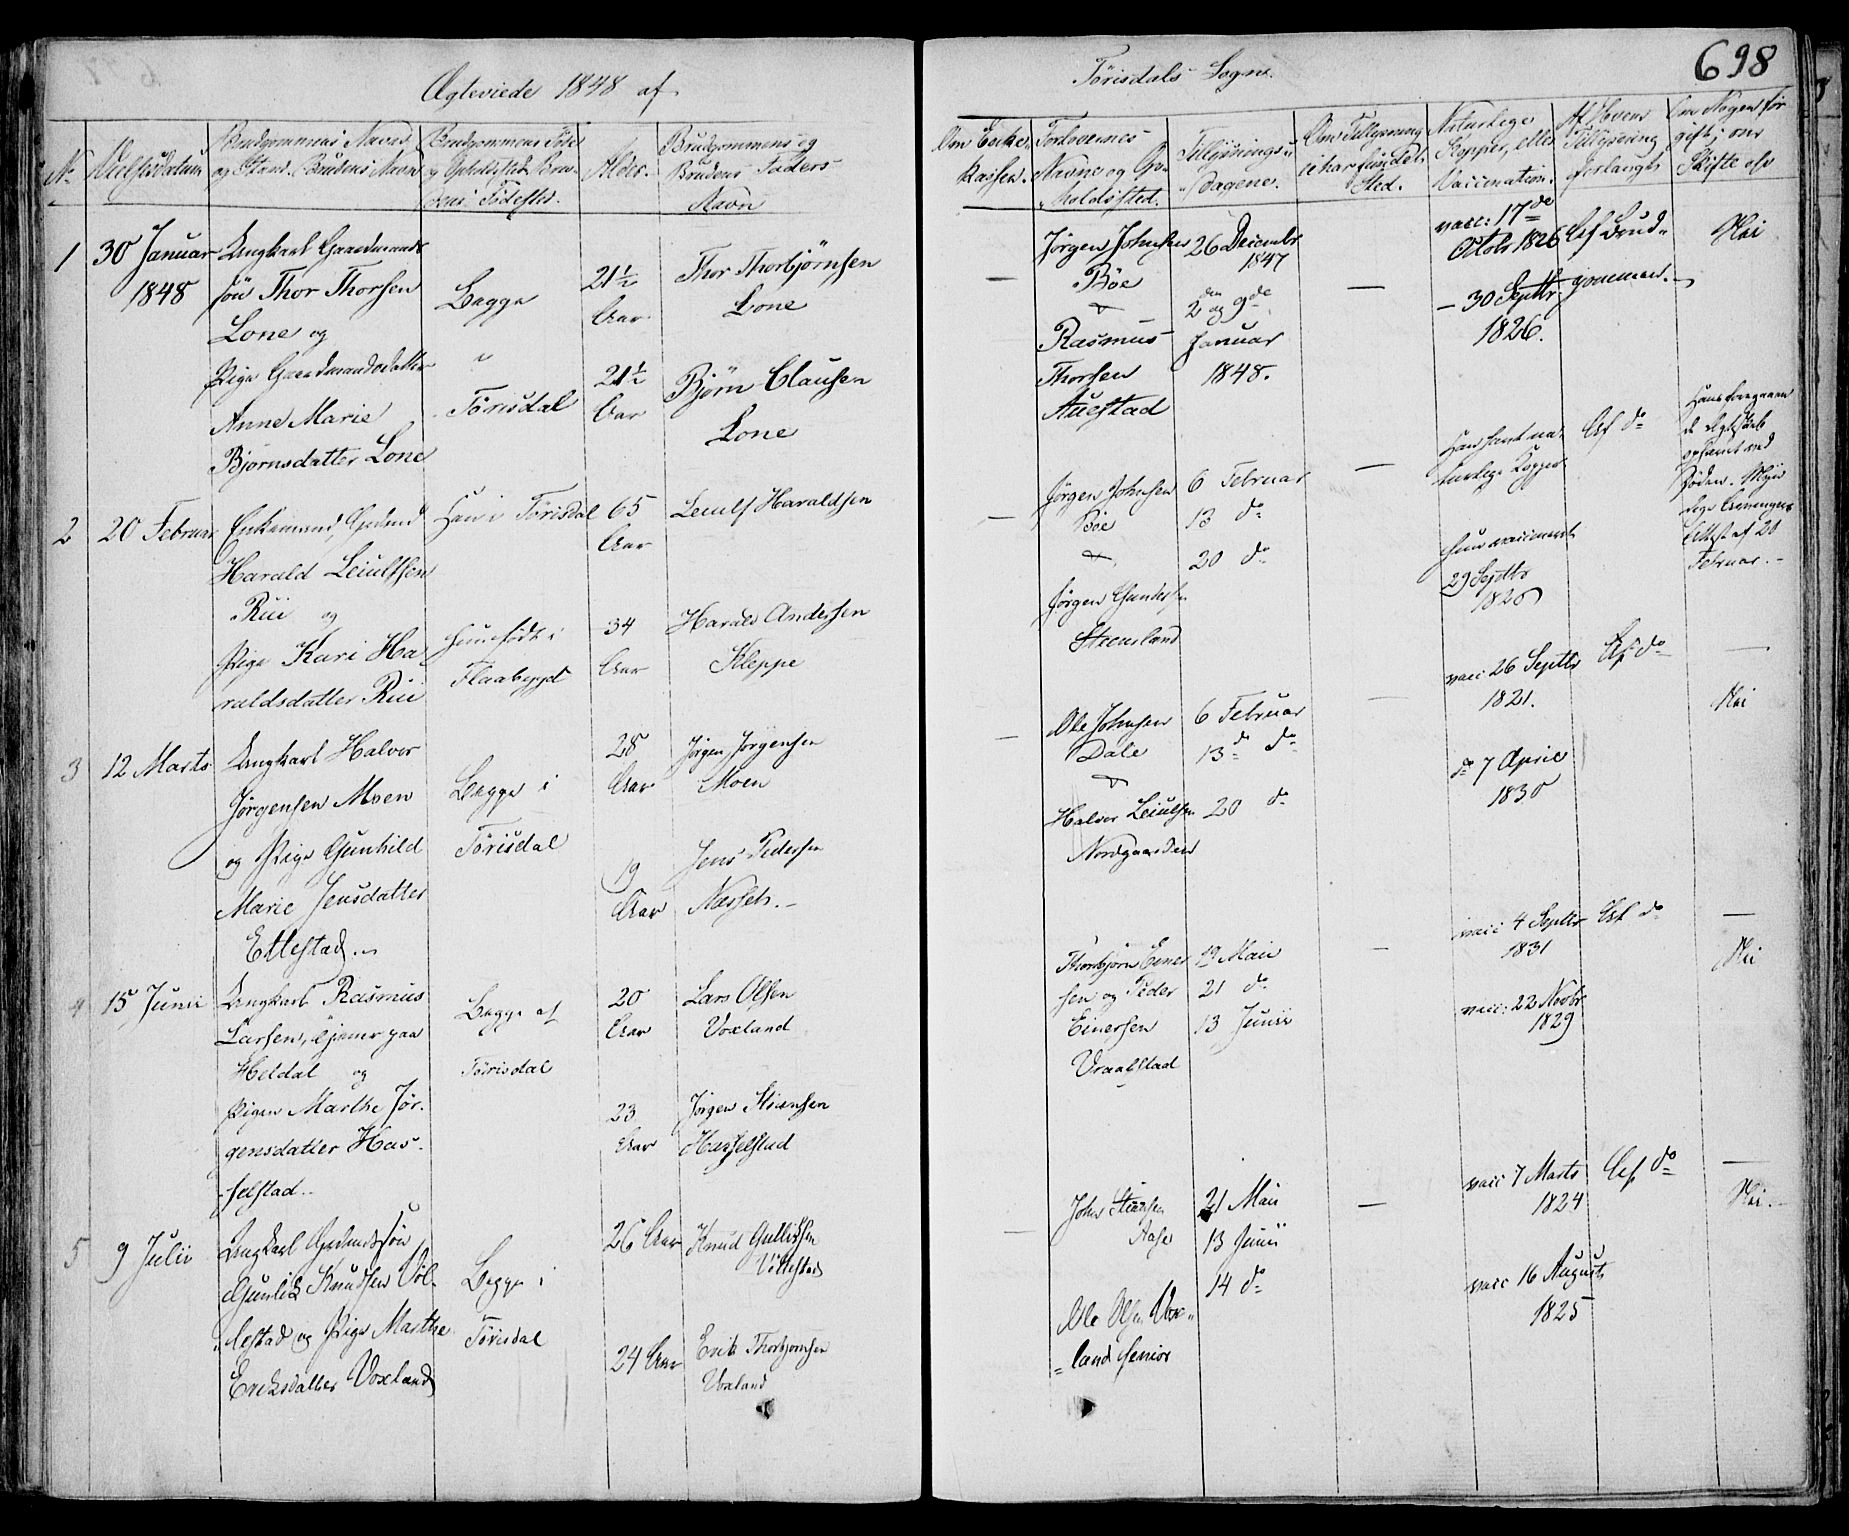 Ægteviede 1848 af
Törisdals Sogn.
698
No
Vielsesdatum
Brudgommens Navn
og Stand. Brudens Navn
Brudgommens Føde
og Opholdsted. Bru-
dens Fødested.
Alder.
Brudgommens og
Brudens Faders
Navn
Om Enke-
kassen.
Forlovernes
Navne og Op-
holdssted.
Tillysnings-
Dagene.
Om Tillysning
i har fundet
Sted.
Naturlige
Kopper, eller
Vaccination.
Af Hvem
Tillysning
forlangt
Om Nogen før
gift; om
Skifte &c
1
30 Januar
1848
Ungkarl Gaardmands
søn Thor Thorsen
Lone og
Pige Gaardmandsdatter
Anne Marie
Bjørnsdatter Lone
Begge
i
Törisdal
21½
Aar
21½
Aar
Thor Thorbjørnsen
Lone
Bjørn Clausen
Lone
—
Jørgen Johnsen
Böe
Rasmus
Thorsen
Auestad
26 Decembr
1847
2den og 9de
Januar
1848.
—
vacc: 17de
Octobr 1826
— 30 Septbr
1826.
Af Brud-
gommen.
Nei
2
20 Februar
Enkemand, Gaardmd
Harald Leiulfsen
Rui og
Pige Kari Ha
raldsdatter Rui
Han i Törisdal
Hun født i
Flaabygd
65
Aar
34
Aar
Leiulf Haraldsen
Harald Andersen
Kleppe
—
Jørgen Johnsen
Böe
Jørgen Gundersen
Steensland
6 Februar
13 do
20 do
—
Han havt na-
turlige Kopper
Hun vaccineret
29 Septbr
1820
Af do
Hans foregaaen
de Ægteskab
ophævet ved
Døden. Myn
dige Arvinger.
Attest af 20
Februar. -
—
3
12 Marts
Ungkarl Halvor
Jørgensen Moen
og Pige Gunhild
Marie Jensdatter
Ettestad.
Begge i
Törisdal
28
Aar
19
Aar
Jørgen Jørgensen
Moen
Jens Pedersen
Næsset. -
—
Ole Johnsen
Dale
Halvor Leiulfsen
Nordgaarden
6 Februar
13 do do
20 do
—
vacc 26 Septbr
1821.
do 7 April
1830
Af do
Nei
—
4
15 Junii
Ungkarl Rasmus
Larsen, tjener paa
Heldal og
Pigen Marthe Jør-
gensdatter Has-
selstad.
Begge af
Törisdal
20
Aar
23
Aar
Lars Olsen
Voxland
Jørgen Stiansen
Hasselstad
Thorbjørn Einer
sen og Peder
Einersen
Vraalstad
19 Mai
21 do
13 Junii
—
vacc 4 Septbr
1831
vacc: 22 Novbr
1829
Af do
Nei
—
5
9 Julii
Ungkarl Gaardmdssøn
Gunlik Knudsen Völ-
lestad og Pige Marthe
Eriksdatter Voxland
Begge i
Törisdal
26 Aar
24 Aar
Knud Gulliksen
Völlestad
Erik Thorbjørnsen
Voxland
—
John Stiansen
Aase
Ole Olsen Vox-
land senior
21 Mai
13 Junii
14 do
—
vacc 7 Marts
1824
vacc 16 August
1825
Af do
Nei. -